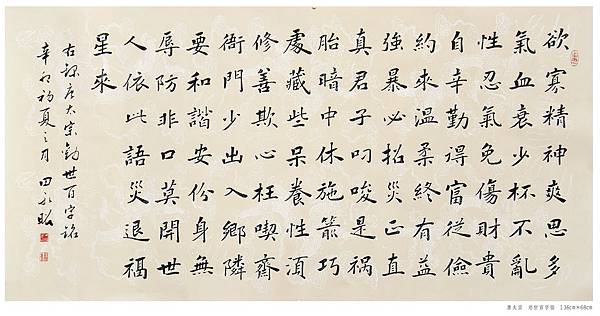 欲寡精神爽思多
氣血衰少杯不亂
性忍氣免傷財貴
自辛勤得富從儉
約來溫柔終有益
強暴必招災正直
真君子叼唆是祸
胎暗中休施箭巧
處藏些呆養性須
修善欺心枉喫齋
衙門少出入鄉隣
要和諧安份身無
辱防非口莫開世
人依此語災退福
星來
右録唐太宗勸世百字銘
辛卯初夏之月田
136cm×68cm